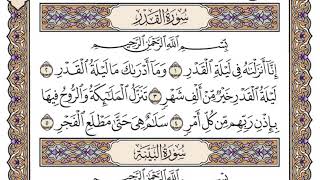 سُورَةُ القَدْرِ
بِسْمِ اللَّهِ الرَّحْمَٰنِ الرَّحِيمِ
إِنَّا أَنزَلْنَٰهُ فِي لَيْلَةِ الْقَدْرِ ١ وَمَا أَدْرَىٰكَ مَا لَيْلَةُ الْقَدْرِ ٢
لَيْلَةُ الْقَدْرِ خَيْرٌ مِّنْ أَلْفِ شَهْرٍ ٣ تَنَزَّلُ الْمَلَٰئِكَةُ وَالرُّوحُ فِيهَا
بِإِذْنِ رَبِّهِم مِّن كُلِّ أَمْرٍ ٤ سَلَٰمٌ هِيَ حَتَّىٰ مَطْلَعِ الْفَجْرِ ٥
سُورَةُ البَيِّنَةِ
بِسْمِ اللَّهِ الرَّحْمَٰنِ الرَّحِيمِ